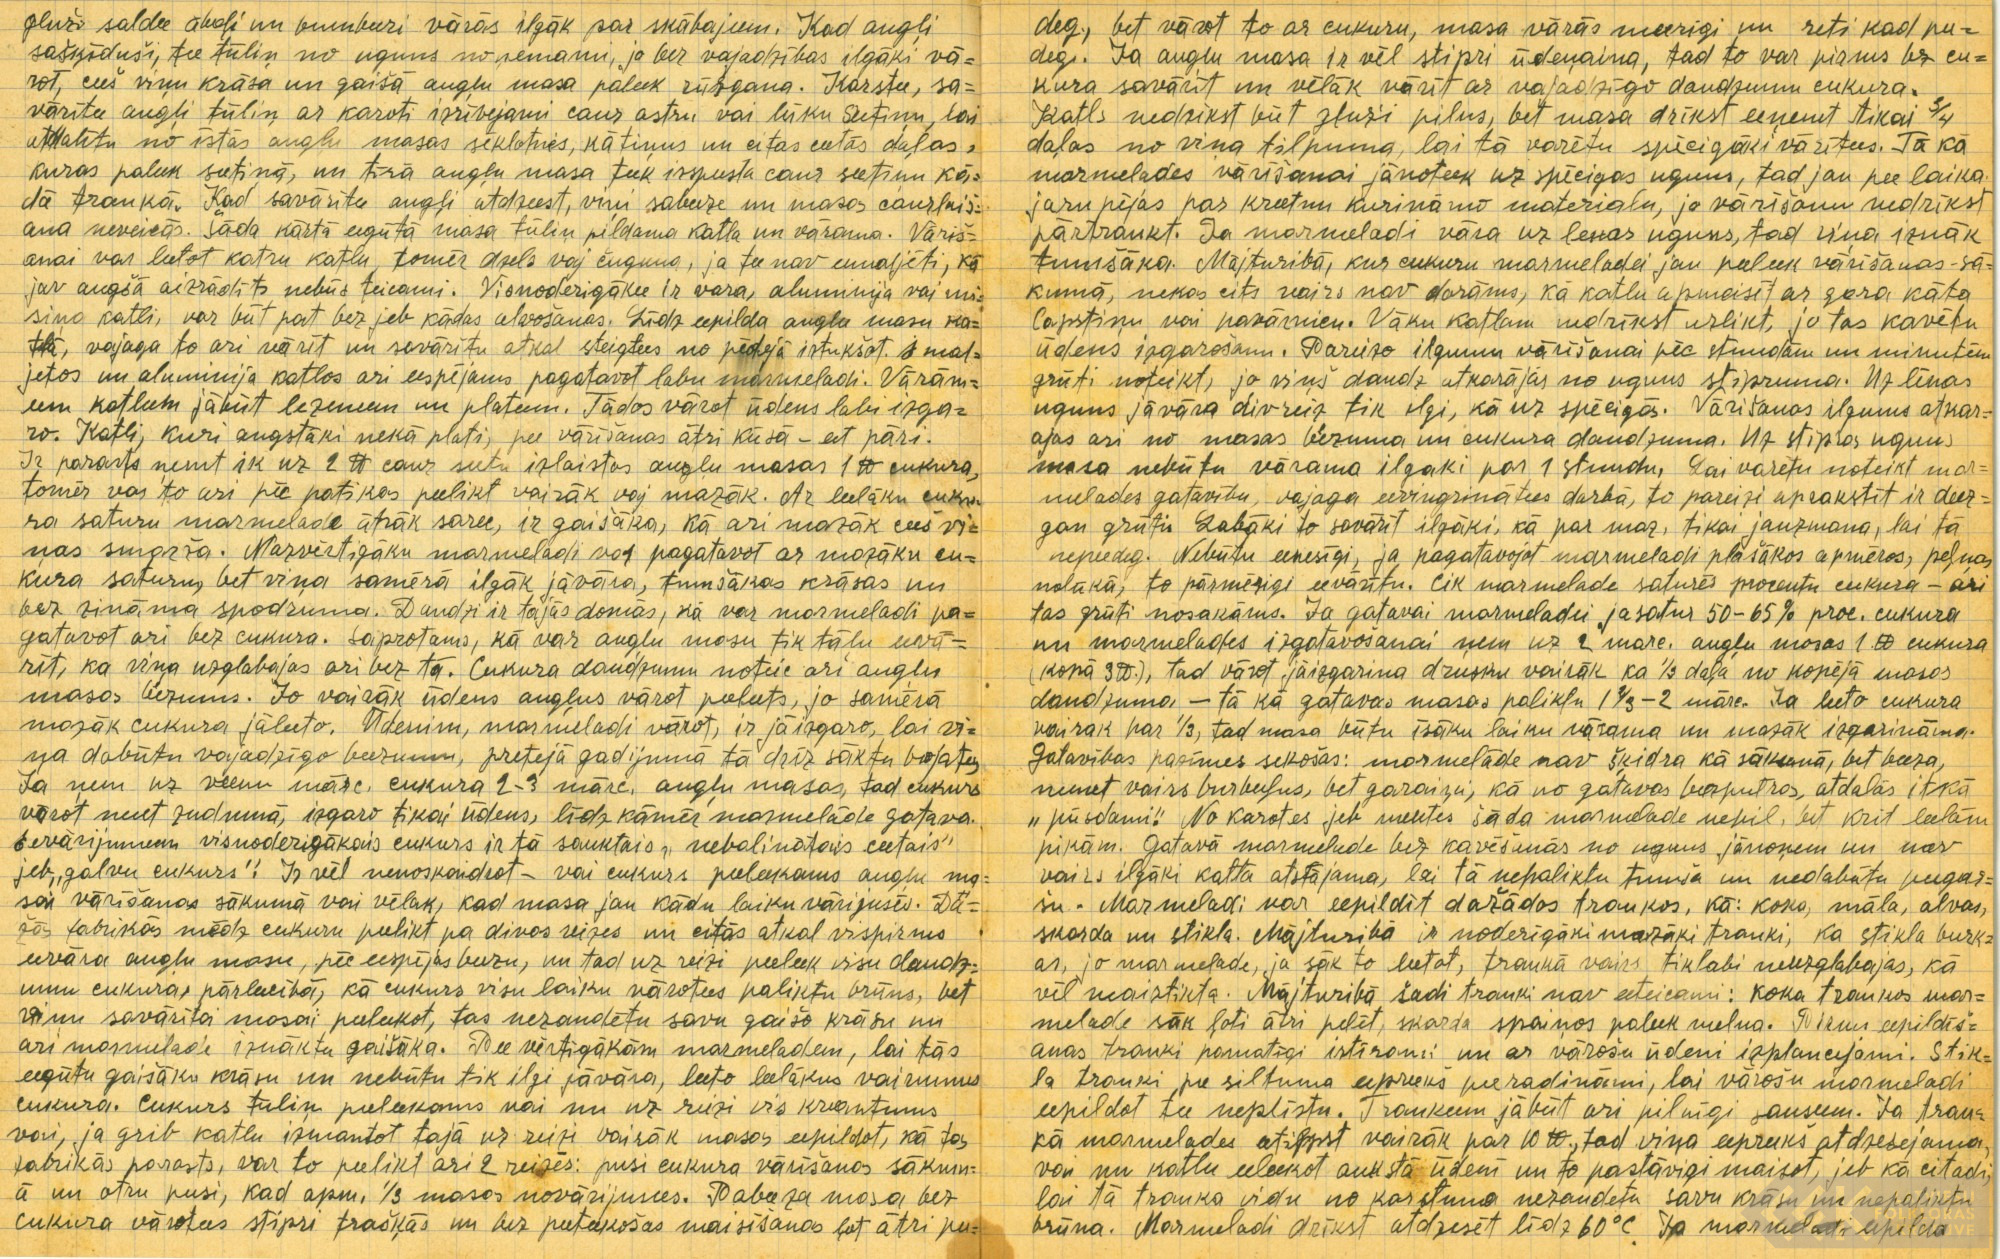 gluži saldee āboli un bumbeeri vārās ilgāk par skābajeem. Kad augļi
sašķīduši, tee tūliņ no uguns noņemami, jo bez vajadzības ilgāki vā=
rot, cieš viņu krāsa un gaišā augļu masa paleek rūsgana. Karstee, sa=
vārītee augļi tūliņ ar karoti izrīvejami caur astru vai lūku seetiņu, lai
atdalītu no īstās augļu masas sēklotnes, kātiņus un citas ceetās daļas,
kuras paleek seetiņā, un tīrā augļu masa teek izspeesta caur seetiņu kā=
dā traukā. Kad savārītee augļi atdzeest, viņi sabeeze un masas caurlaiš=
ana neveicās. Šāda kārtā eegūtā masa tūliņ pildama katlā un vārama. Vāriš=
anai var leetot katru katlu, tomēr dzels vaj čuguna, ja tee nav emaljeti, kā
jav augšā aizrādīts nebūs teicami. Visnoderigākee ir vara, aluminija vai mi=
siņa katli, var būt pat bez jeb kādas alvošanas. Līdz eepilda augļu masu ka=
tlā, vajaga to ari vārīt un savārītu atkal steigtees no pēdejā iztukšot. Emal=
jetos un aluminija katlos ari eespējams pagatavot labu marmeladi. Vārām=
eem katleem jābūt lezeneem un plateem. Tādos vārot ūdens labi izga=
ro. Katli, kuri augstāki nekā plati, pee vārīšanas ātri kūsā – eet pāri.
Ir parasts ņemt ik uz 2 ℔ caur seetu izlaistas augļu masas 1 ℔ cukura,
tomēr var to ari pēc patikas peelikt vairāk vaj mazāk. Ar leelāku cuku
ra saturu marmelade ātrāk saree, ir gaišāka, kā ari mazāk cieš vi=
ņas smarža. Mazvērtigāku marmeladi var pagatavot ar mazāku cu=
kura saturu, bet viņa samērā ilgāk jāvāra, tumšākas krāsas un
bez zināma spodruma. Daudzi ir tajās domās, kā var marmeladi pa=
gatavot ari bez cukura. Saprotams, kā var augļu masu tik tālu eevā=
rīt, ka viņa uzglabajas ari bez tā. Cukura daudzumu noteic ari augļu
masas beezums. Jo vairāk ūdens augļus vārot peeleets, jo samērā
mazāk cukura jāleeto. Ūdenim, marmeladi vārot, ir jāizgaro, lai vi=
ņa dabūtu vajadzīgo beezumu, pretejā gadijumā tā drīz sāktu bojatees
Ja ņem uz veenu mārc. cukura 2–3 mārc. augļu masas, tad cukurs
vārot neeet zudumā, izgaro tikai ūdens, līdz kāmēr marmelāde gatava.
Eevārijumeem visnoderigākais cukurs ir tā sauktais „nebalinātais ceetais"
jeb „galvu cukurs"! Ir vēl nenoskaidrot – vai cukurs peeleekams augļu ma=
sai vārišanas sākumā vai vēlak, kad masa jau kādu laiku vārijusēs. Da=
žās fabrikās mēdz cukuru peelikt pa divas reizes un citās atkal vispirms
eevāra augļu masu, pēc eespējas beezu, un tad uz reizi peeleek visu daudz=
umu cukura, pārleecibā, kā cukurs visu laiku vārotees paliktu brūns, bet
viņu savārītai masai peeleekot, tas nezaudētu savu gaišo krāsu un
ari marmelade iznāktu gaišāka. Pee vērtigākām marmeladem, lai tās
eegūtu gaišāku krāsu un nebūtu tik ilgi jāvāra, leeto leelākus vairumus
cukura. Cukurs tūliņ peeleekams vai nu uz reizi vis kvantums
vai, ja grib katlu izmantot tajā uz reizi vairāk masas eepildot, kā tas
fabrikās parasts, var to peelikt ari 2 reizēs: pusi cukura vārišanas sākum=
ā un otru pusi, kad apm. 1/3 masas novārijusees. Pabeeza masa bez
cukura vārotees stipri trašķās un bez peeteekošas maisīšanas ļot ātri pee=
deg, bet vārot to ar cukuru, masa vārās meerigi un reti kad pee=
deg. Ja augļu masa ir vēl stipri ūdeņaina, tad to var pirms bez cu=
kura savārīt un vēlāk vārīt ar vajadzīgo daudzumu cukura.
Katls nedrīkst būt gluži pilns, bet masa drīkst eeņemt tikai 3/4
daļas no viņa tilpuma, lai tā varētu spēcigāki vārītees. Tā kā
marmelades vārīšanai jānoteek uz spēcigas uguns, tad jau pee laika
jārupējas par kreetnu kurināmo materialu, jo vārīšanu nedrīkst
pārtraukt. Ja marmeladi vāra uz lēnas uguns, tad viņa iznāk
tumšāka. Mājturibā, kur cukuru marmeladei jau peeleek vārīšanas sā=
kumā, nekas cits vairs nav darāms, kā katlu apmaisīt ar gara kāta
lāpstiņu vai pavārnicu. Vāku katlam nedrīkst uzlikt, jo tas kavētu
ūdens izgarošanu. Pareizo ilgumu vārīšanai pēc stundām un minutēm
grūti noteikt, jo viņš daudz atkarājās no uguns stipruma. Uz lēnas
uguns jāvāra divreiz tik ilgi, kā uz spēcigās. Vārīšanas ilgums atkar=
ajas ari no masas beezuma un cukura daudzuma. Uz stipras uguns
masa nebūtu vārama ilgaki par 1 stundu, Lai varētu noteikt mar=
melades gatavību, vajaga eevingrinātees darbā, to pareizi aprakstīt ir deez=
gan grūti. Labāki to savārīt ilgāki, kā par maz, tikai jauzmana, lai tā
nepeedeg. Nebūtu eenesīgi, ja pagatavojot marmeladi plašākos apmēros, peļņas
nolūkā, to pārmērigi eevārītu. Cik marmelade saturēs procentu cukura – ari
tas grūti nosakāms. Ja gatavai marmeladei jasatur 50–65% proc. cukura
un marmelades izgatavošanai ņem uz 2 marc. augļu masas 1 ℔ cukura
(kopā 3℔.), tad vārot jāizgarina drusku vairāk ka 1/3 daļa no kopējā masas
daudzuma, – tā kā gatavas masas paliktu 1 4/3–2 mārc. Ja leeto cukura
vairak par 1/3, tad masa būtu īsāku laiku vārama un mazāk izgarināma.
Gatavības pazīmes sekošas: marmelāde nav šķidra kā sākumā, bet beeza,
nemet vairs burbuļus, bet garaiņu, kā no gatavas beezputras, atdalās itkā
„pūsdami". No karotes jeb mentes šāda marmelade nepil, bet krīt leelām
pikām. Gatavā marmelade bez kavēšanās no uguns jānoņem un nav
vairs ilgāki katlā atstājama, lai tā nepaliktu tumša un nedabūtu peegar=
šu. Marmeladi var eepildīt dažādos traukos, kā: koka, māla, alvas,
skarda un stikla. Mājturibā ir noderigāki mazāki trauki, kā stikla burk=
as, jo marmelade, ja sāk to leetot, traukā vairs tiklabi neuzglabajas, kā
vēl neaiztikta. Mājturibā šadi trauki nav eeteicami: koka traukos mar=
melade sāk ļoti ātri pelēt, skarda spaiņos paleek melna. Pirms eepildīš=
anas trauki pamatīgi iztīrami un ar vārošu ūdeni izplaucejami. Stik=
la trauki pee siltuma eepreekš peeradināmi, lai vārošu marmeladi
eepildot tee neplīstu. Traukeem jābūt ari pilnīgi sauseem. Ja trau=
kā marmelades vairāk par 10 ℔., tad viņa eepreekš atdzesejama,
vai nu katlu eeleekot aukstā ūdenī un to pastāvigi maisot, jeb kā citādi,
lai tā trauka vidū no karstuma nezaudetu savu krāsu un nepaliktu
brūna. Marmeladi drīkst atdzesēt līdz 60°C. Ja marmeladi eepilda